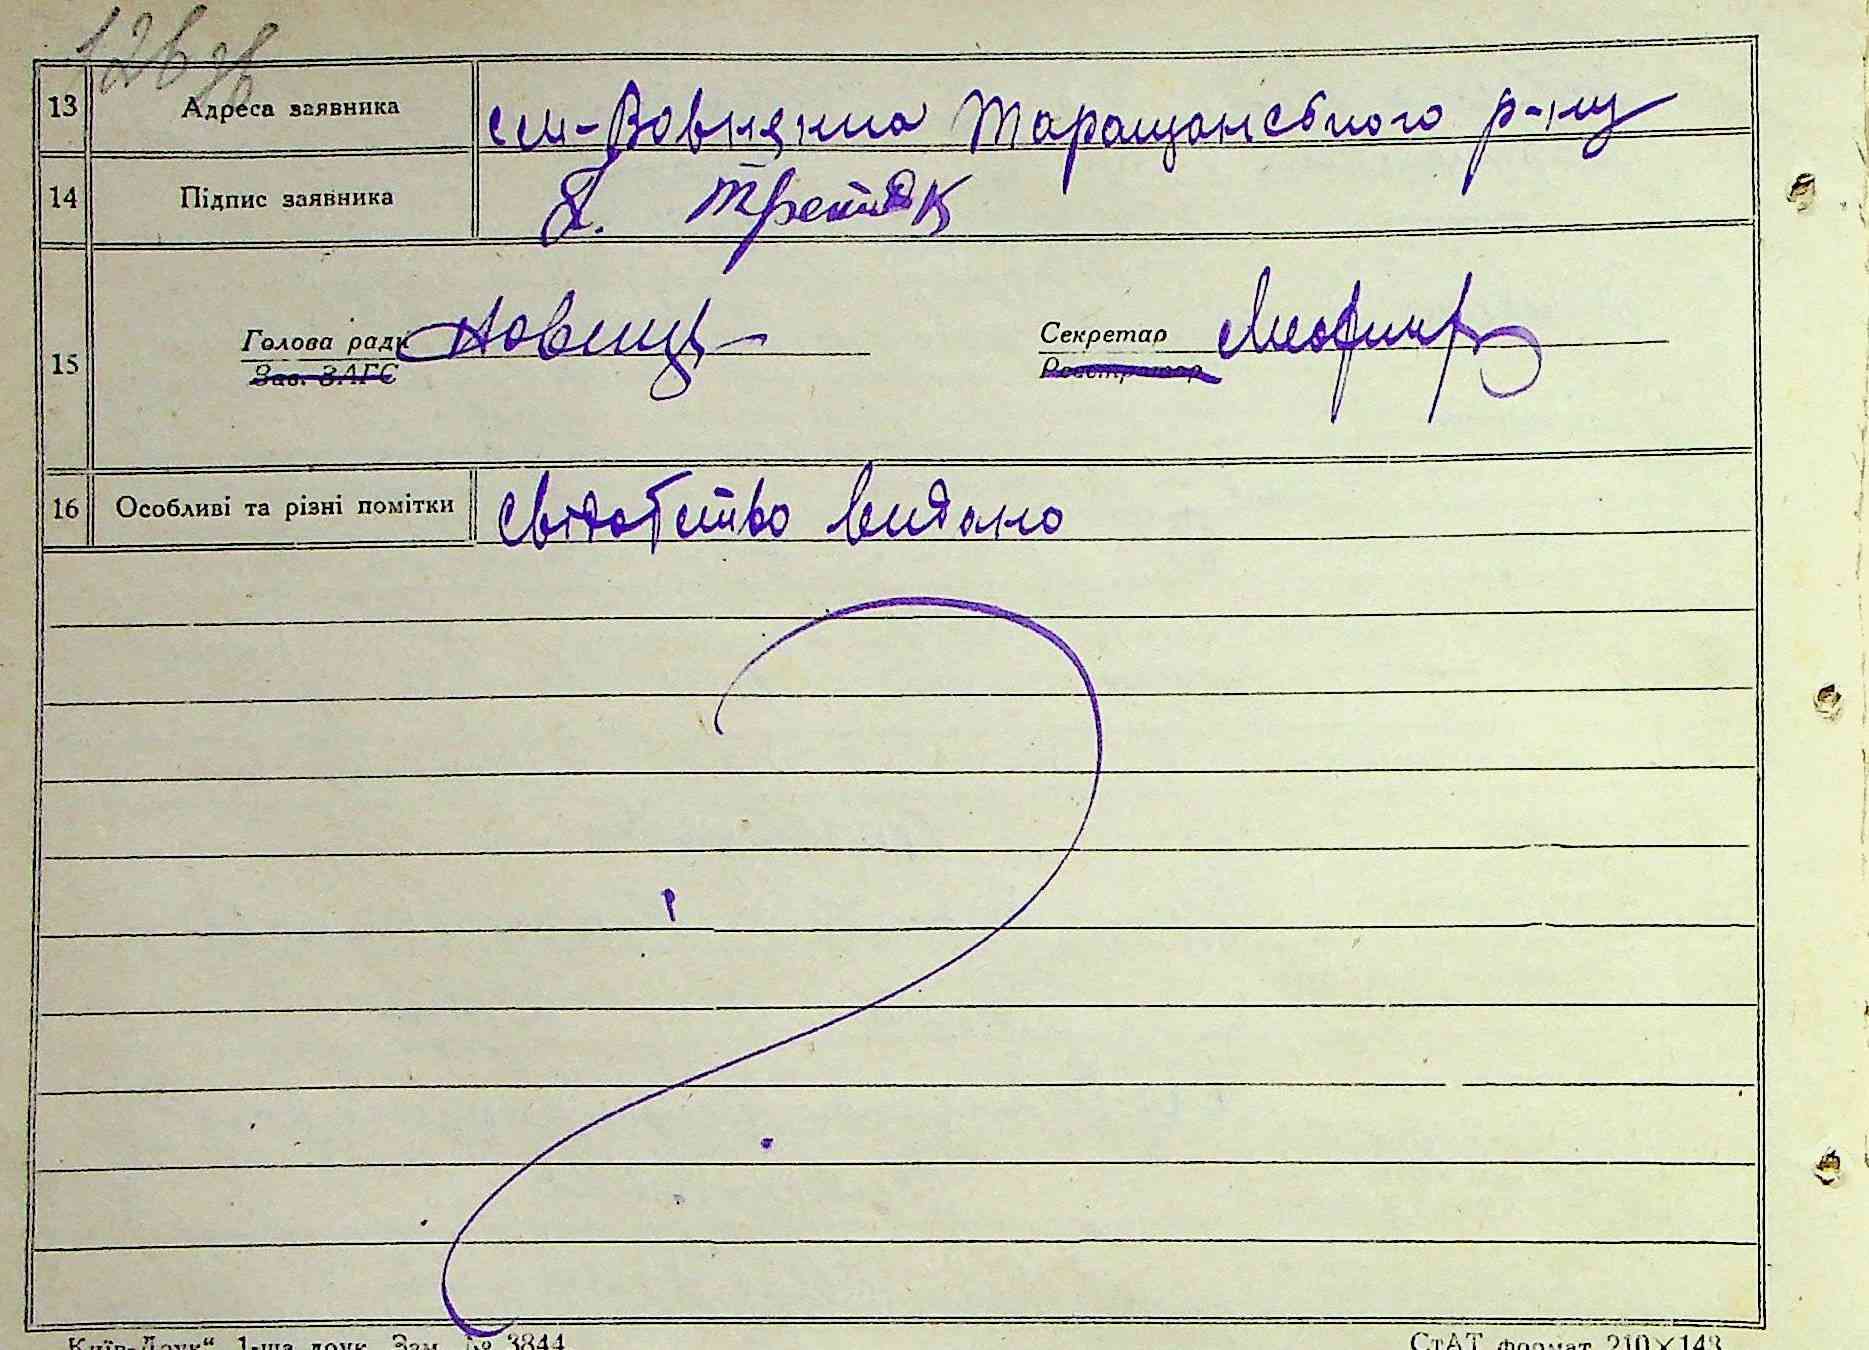 126 зв
13 Адреса заявника сел-Вовнянка Таращанського р-ну
14 Підпис заявника П. Третяк
15 Голова ради Секретар
Зав. ЗАГС Реєстратор
16 Особливі та різні помітки свідоцтво видано
„Київ-Друк“ 1-ша друк. Зам. № 3844 СтАТ формат 210×148